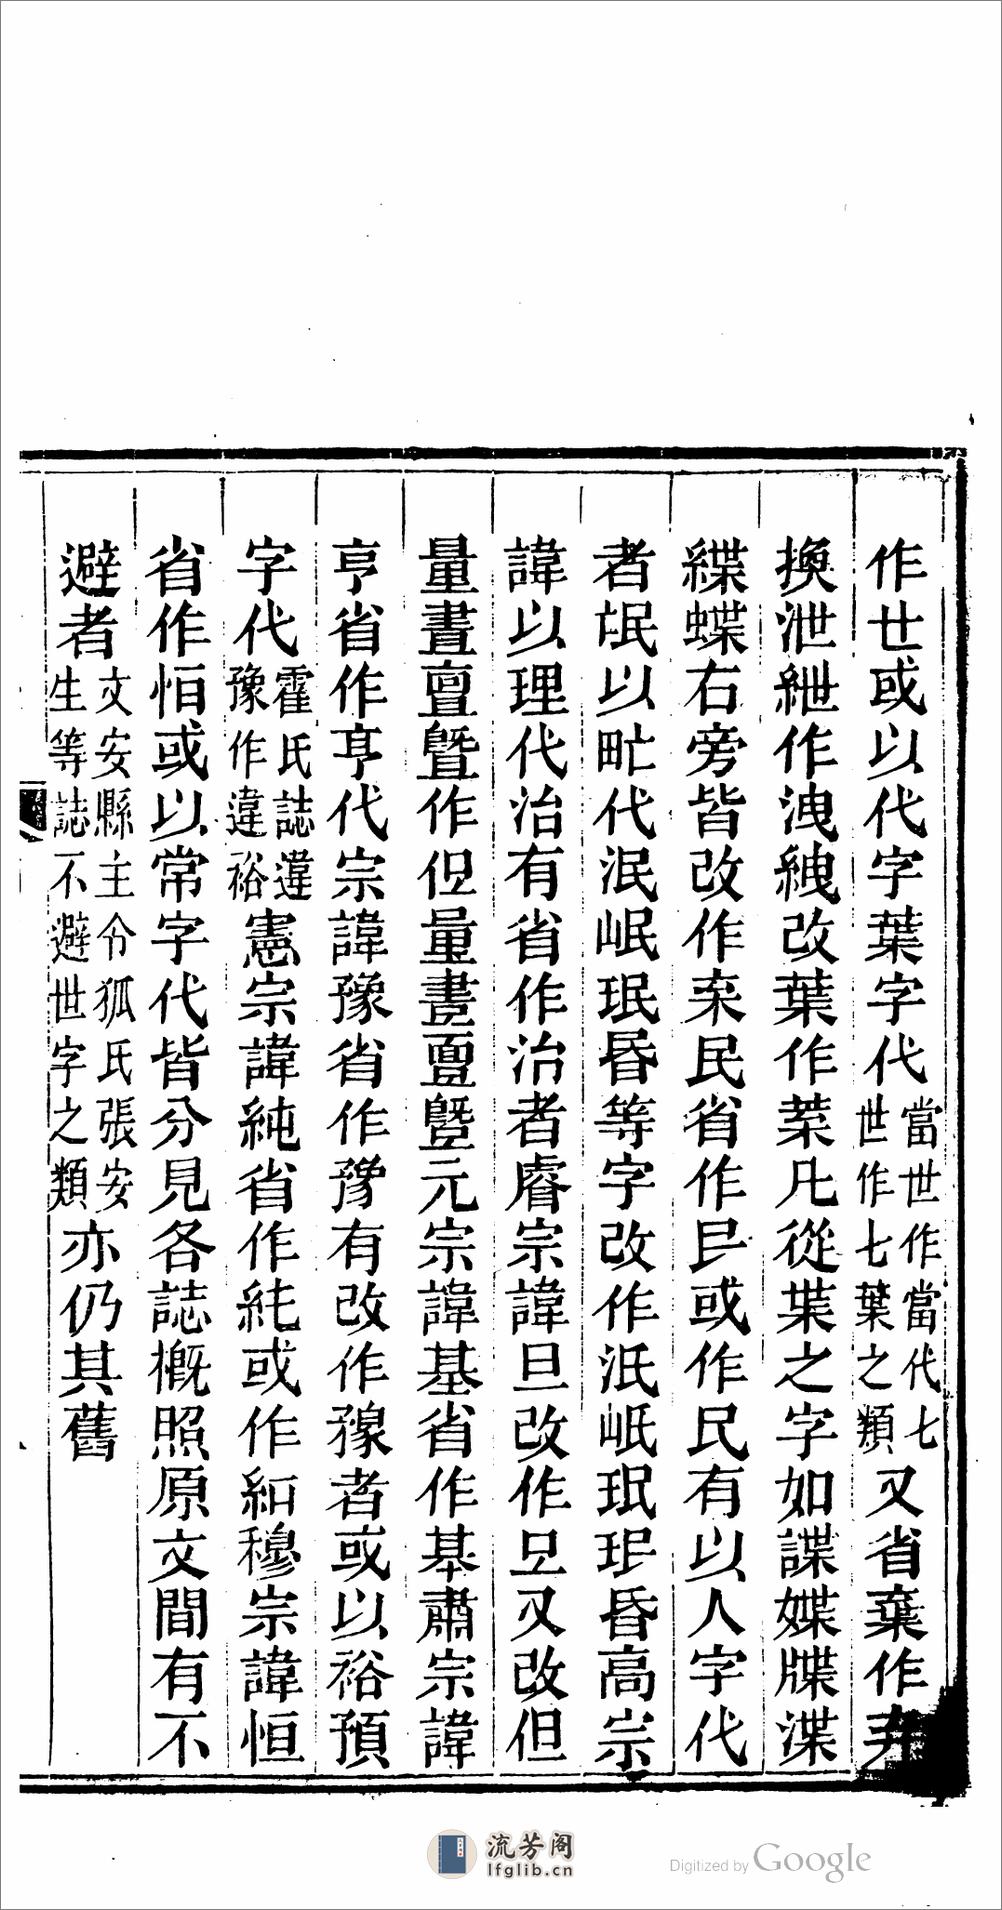 作世或以代字葉字代當世作當代七世作七葉之類又省棄作弃
換泄紲作洩絏改葉作菜凡從枼之字如諜媟牒渫
緤蝶右旁皆改作枽民省作𫞖或作民有以人字代
者氓以甿代泯岷珉昬等字改作泜岻珉昏高宗
諱以理代治有省作治者睿宗諱旦改作㫜又改但
量晝亶曁作但量晝亶曁元宗諱基省作基肅宗諱
亨省作亨代宗諱豫省作豫有改作豫者或以裕預
字代霍氏誌違豫作違裕憲宗諱純省作純或作紉穆宗諱恒
省作恒或以常字代皆分見各誌概照原文間有不
避者文安縣主令狐氏張安生等誌不避世字之類亦仍其舊
流芳阁
lfglib.cn
Digitized by Google